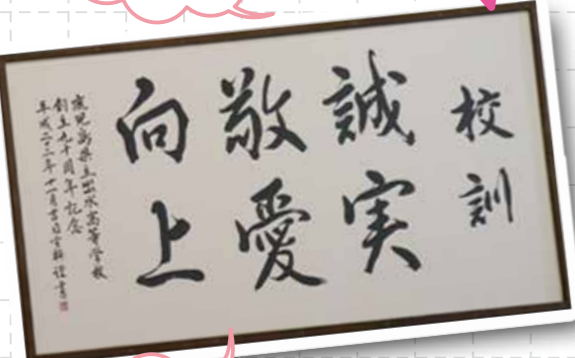 校訓
誠実
敬愛
向上
鹿児島県立出水高等学校
創立九十周年記念
平成二十二年十一月吉日